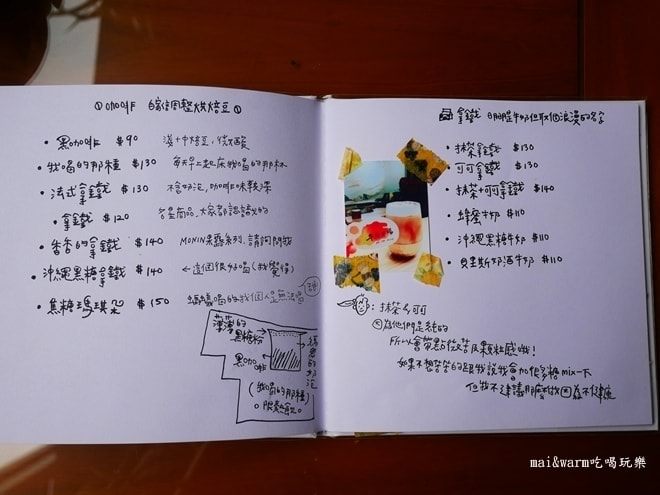 咖啡
烘焙豆
黑咖啡 $90 淺+中焙豆, 微酸
我喝的那種 $130 每天早上起床我喝的那杯
法式拿鐵 $130 不含奶泡, 咖啡味較深
拿鐵 $120 名星商品, 大家都認識的
香香的拿鐵 $140 MONIN果露系列, 請詢問我
沖繩黑糖拿鐵 $140 ←這個很好喝(我覺得)
焦糖瑪琪朵 $150 螞蟻喝的我個人是無法喝
甜
薄薄的
黑糖粉
黑咖啡
綿密的奶泡
(我喝的那種)
。服熱飲。
拿鐵 明明是牛奶但取個浪漫的名字
抹茶拿鐵 $130
可可拿鐵 $130
抹茶+可可拿鐵 $140
蜂蜜牛奶 $110
沖繩黑糖牛奶 $110
貝里斯奶酒牛奶 $110
: 抹茶&可可
因為他們是純的
所以會帶點微苦及顆粒感哦!
如果不想苦苦的跟我說我會加很多糖mix一下
但我不建議那麼做因為不健康
mai&warm吃喝玩樂